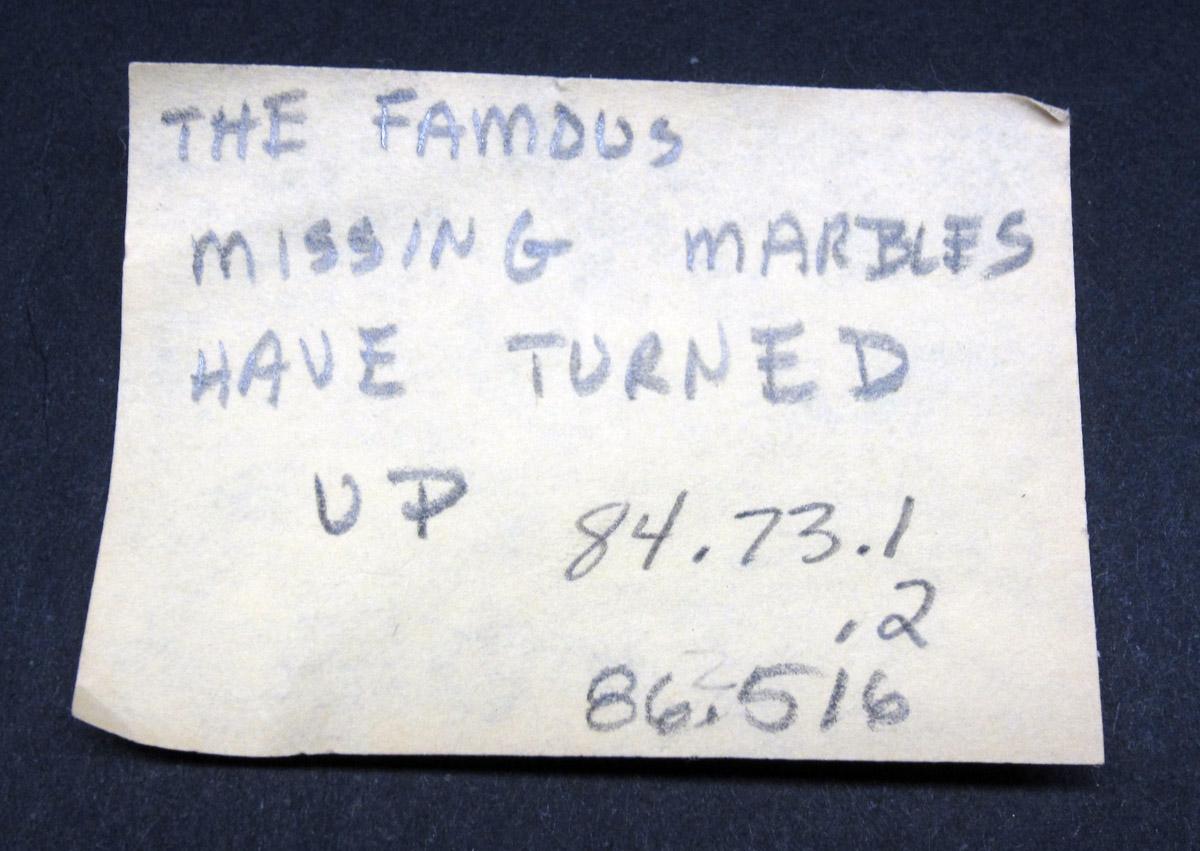 THE FAMOUS
MISSING MARBLES
HAVE TURNED
UP 84.73.1
.2
86.516